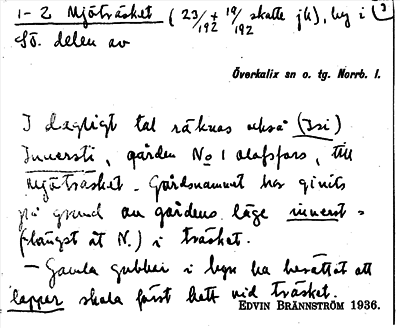 1-2 Mjöträsket (23/192 + 19/192 skatte jh), by i
SÖ. delen av
Överkalix sn o. tg. Norrb. l.
I dagligt tal räknas också (Isi)
Innersti, gården No 1 Olofsfors, till
Mjöträsket. Gårdsnamnet har givits
på grund av gårdens läge innerst =
(längst åt N.) i träsket.
— Gamla gubbar i byn ha berättat att
lapper skola först bott vid träsket.
EDVIN BRÄNNSTRÖM 1936.